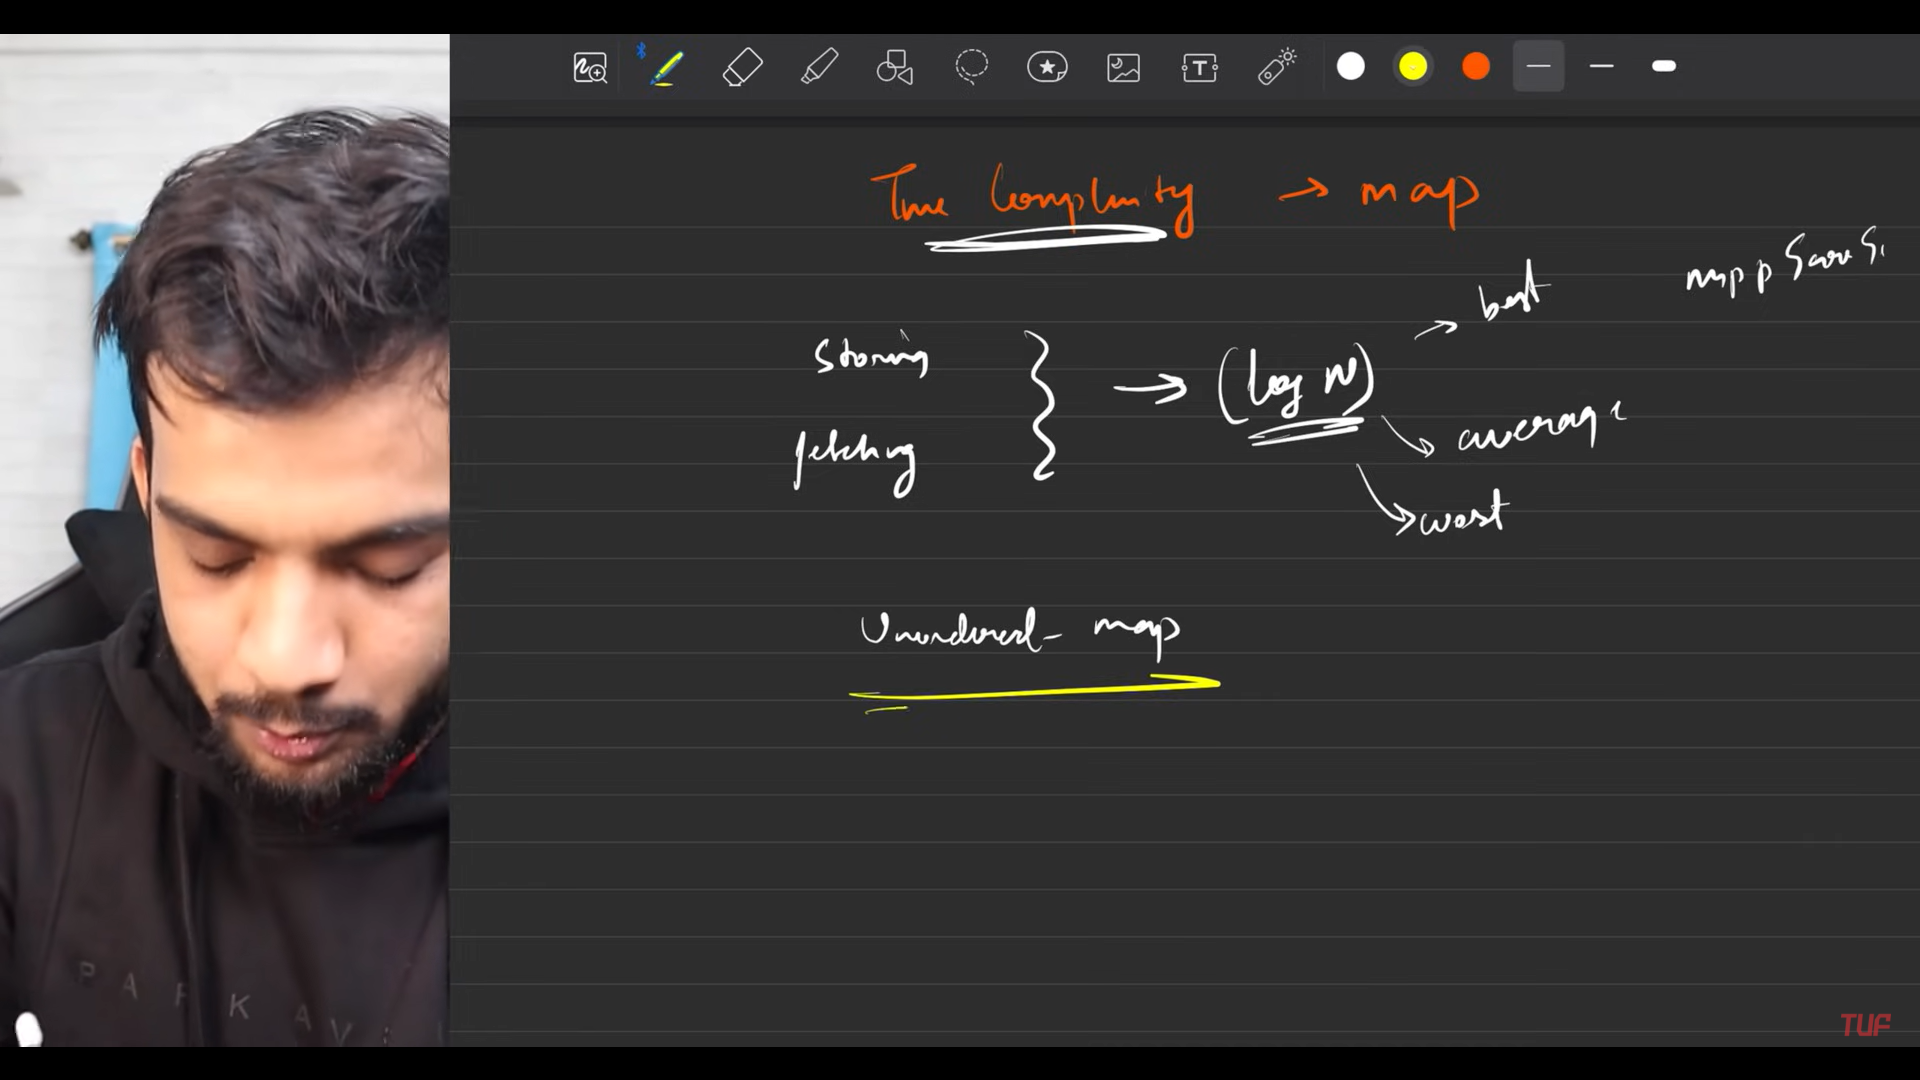 Time Complexity → map
best
storing
fetching
→ (log N)
average
worst
Unordered- map
PARKAV
TUF